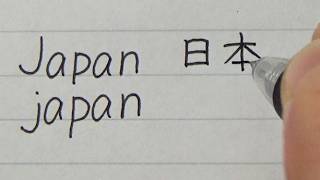 Japan 日本
japan